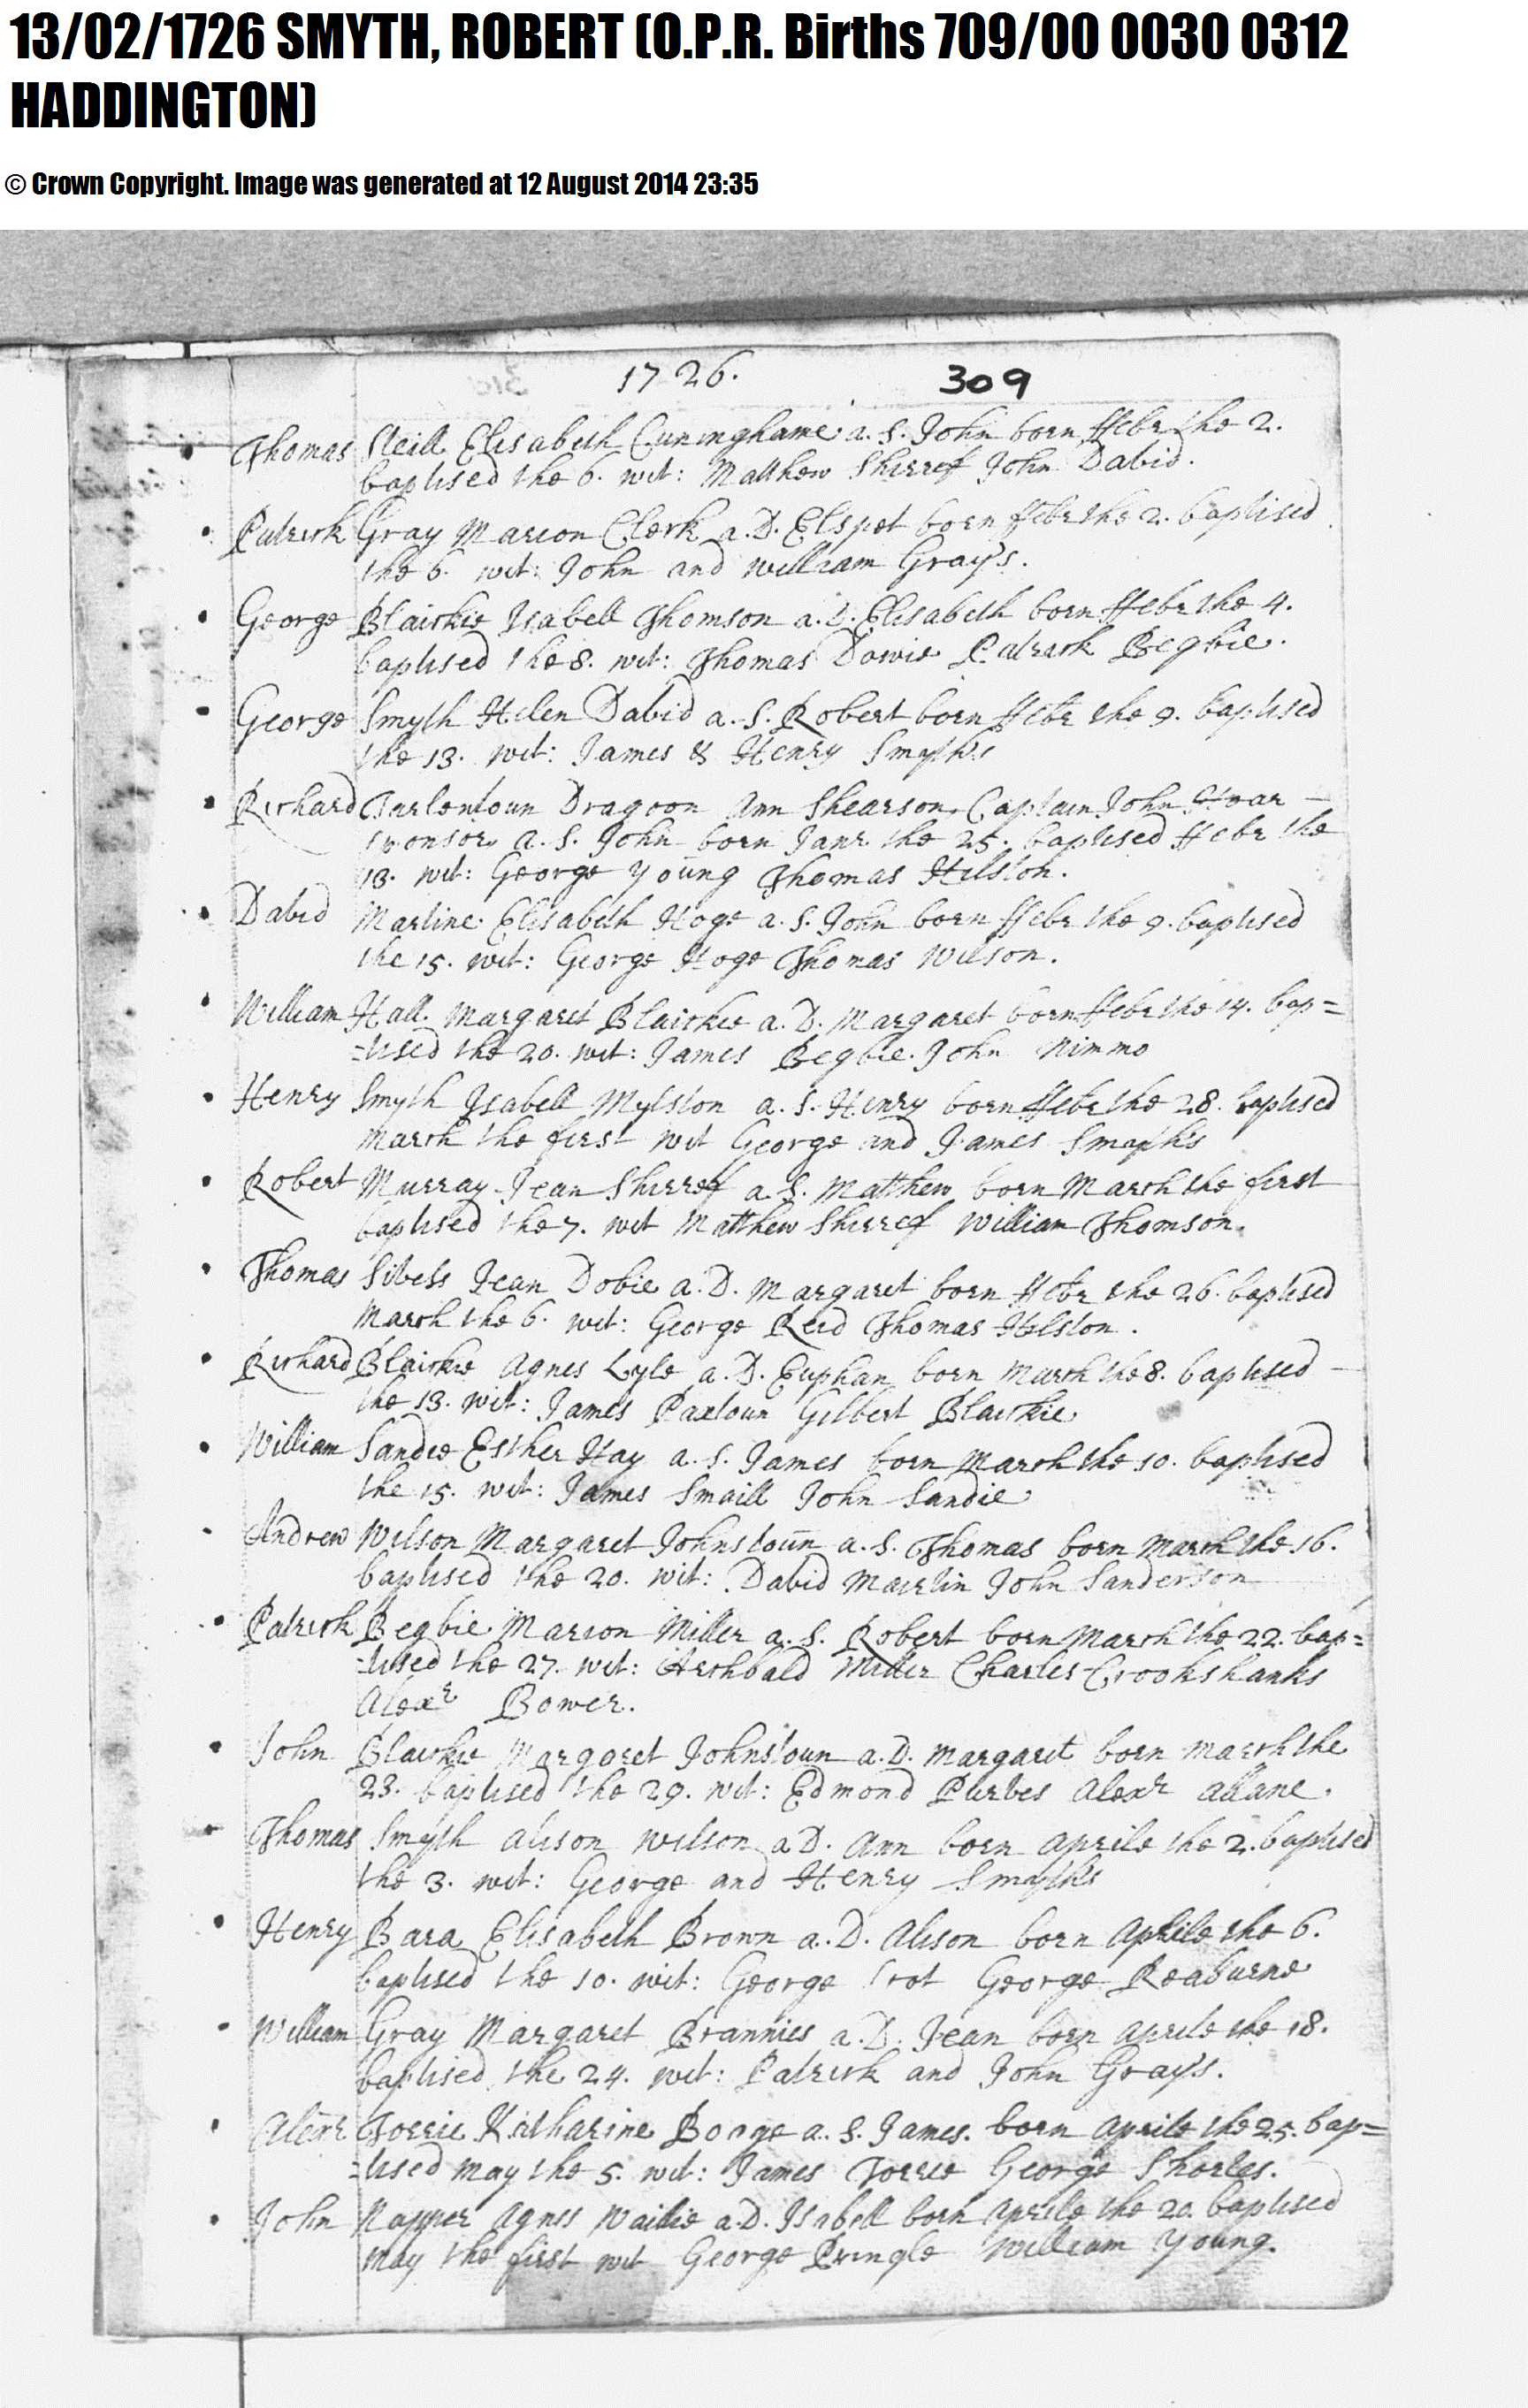 13/02/1726 SMYTH, ROBERT (O.P.R. Births 709/00 0030 0312
HADDINGTON)
© Crown Copyright. Image was generated at 12 August 2014 23:35
1726.
309
Thomas Steill Elisabeth Cuninghame a. S. John born ffebr the 2.
baptised the 6. wit: Matthew Shirref John David.
Patrick Gray Marion Clerk a. D. Elspet born ffebr the 2. baptised
the 6. wit: John and William Gray's.
George Blaickie Isabell Thomson a. D. Elisabeth born ffebr the 4.
baptised the 8. wit: Thomas Dowie Patrick Begbie.
George Smyth Helen David a. S. Robert born ffebr the 9. baptised
the 13. wit: James & Henry Smyths
Richard Tarlentoun Dragoon Ann Shearson, Captain John
sponsor, a. S. John born Janr the 25. baptised ffebr the
13. wit: George Young Thomas Hilston.
David Martine Elisabeth Hoge a. S. John born ffebr the 9. baptised
the 15. wit: George Hoge Thomas Wilson.
William Hall. Margaret Blaickie a. D. Margaret born ffebr the 14. bap=
=tised the 20. wit: James Begbie. John Nimmo
Henry Smyth Isabell Mylston a. S. Henry born ffebr the 28. baptised
March the first wit George and James Smyth's
Robert Murray Jean Shirref a. S. Matthew born March the first
baptised the 7. wit Matthew Shirref William Thomson.
Thomas Jean Dobie a. D. Margaret born ffebr the 26. baptised
March the 6. wit: George Reid Thomas Hilston.
Richard Blaickie Agnes Lyle a. D. Euphan born March the 8. baptised
the 13. wit: James Paxtoun Gilbert Blaickie
William Sandie Esther Hay a. S. James born March the 10. baptised
the 15. wit: James Smaill John Sandie
Andrew Wilson Margaret Johnstoun a. S. Thomas born March the 16.
baptised the 20. wit: David Mairtin John Sanderson
Patrick Begbie Marion Miller a. S. Robert born March the 22. bap=
=tised the 27. wit: Archbald Miller Charles Crookshanks
Alexr Bower.
John Blaickie Margaret Johnstoun a. D. Margaret born March the
23. baptised the 29. wit: Edmond Purves Alexr Allane.
Thomas Smyth Alison Wilson a D. Ann born Aprile the 2. baptised
the 3. wit: George and Henry Smyths
Henry Bara Elisabeth Brown a. D. Alison born Aprile the 6.
baptised the 10. wit: George Trot George Reaburne
William Gray Margaret Brannies a. D. Jean born Aprile the 18.
baptised the 24. wit: Patrick and John Gray's.
Alexr Torrie Katharine Booge a. S. James. born Aprile the 25. bap=
=tised May the 5. wit: James Torrie George Shorles.
John Napper Agnes Wailie a. D. Isabell born Aprile the 20. baptised
May the first wit George Pringle William Young.